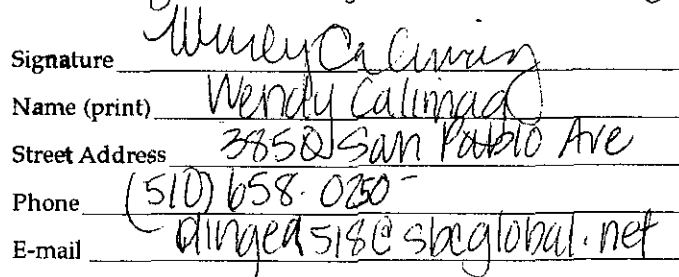 Signature
Name (print) Wendy Calimag
Street Address 3850 San Pablo Ave
Phone (510) 658-0250
E-mail @sbcglobal.net